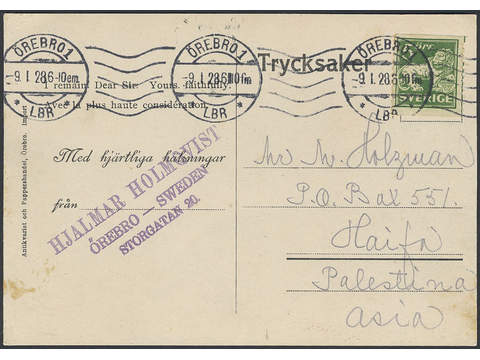 ÖREBRO 1
-9. I. 28.6-10em.
* LBR *
ÖREBRO 1
-9. I. 28.6
* LBR *
ÖREBRO 1
-9. I. 28.6
* LBR
Trycksaker
5
SVERIGE
I remain Dear Sir. Yours faithfully.
Avec la plus haute considération.
Med hjärtliga hälsningar
från
HJALMAR HOLMQVIST
ÖREBRO — SWEDEN
STORGATAN 20.
Antikvariet och Pappershandel, Örebro.
Mr W. Holzman
P.O. Box 551.
Haifa
Palestina
Asia